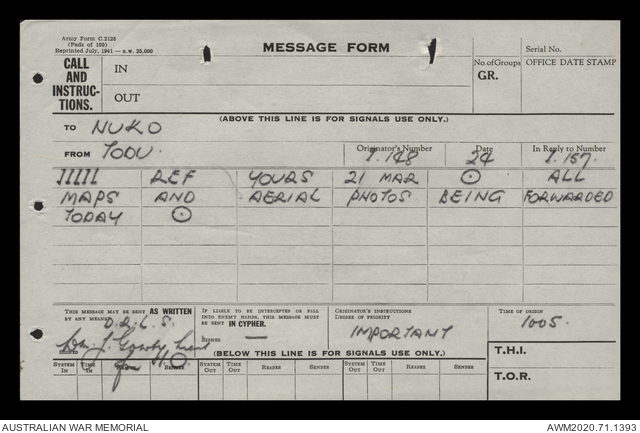 Army Form C.2128
(Pads of 100)
Reprinted July, 1941—s.w. 25,000
MESSAGE FORM
Serial No.
CALL AND INSTRUC-TIONS.
IN
OUT
No. of Groups
GR.
OFFICE DATE STAMP
(ABOVE THIS LINE IS FOR SIGNALS USE ONLY.)
TO NUKO
FROM TOOU.
Originator's Number
I.148
Date
24
In Reply to Number
I.157.
IIIII REF YOURS 21 MAR ⊙ ALL
MAPS AND AERIAL PHOTOS BEING FORWARDED
TODAY ⊙
THIS MESSAGE MAY BE SENT AS WRITTEN BY ANY MEANS
D.R.L.S.
SIGNED
IF LIABLE TO BE INTERCEPTED OR FALL INTO ENEMY HANDS, THIS MESSAGE MUST BE SENT IN CYPHER.
SIGNED —
ORIGINATOR'S INSTRUCTIONS
DEGREE OF PRIORITY
IMPORTANT
TIME OF ORIGIN
1005.
(BELOW THIS LINE IS FOR SIGNALS USE ONLY.)
T.H.I.
T.O.R.
SYSTEM IN TIME IN READER SENDER SYSTEM OUT TIME OUT READER SENDER SYSTEM OUT TIME OUT READER SENDER
AUSTRALIAN WAR MEMORIAL
AWM2020.71.1393